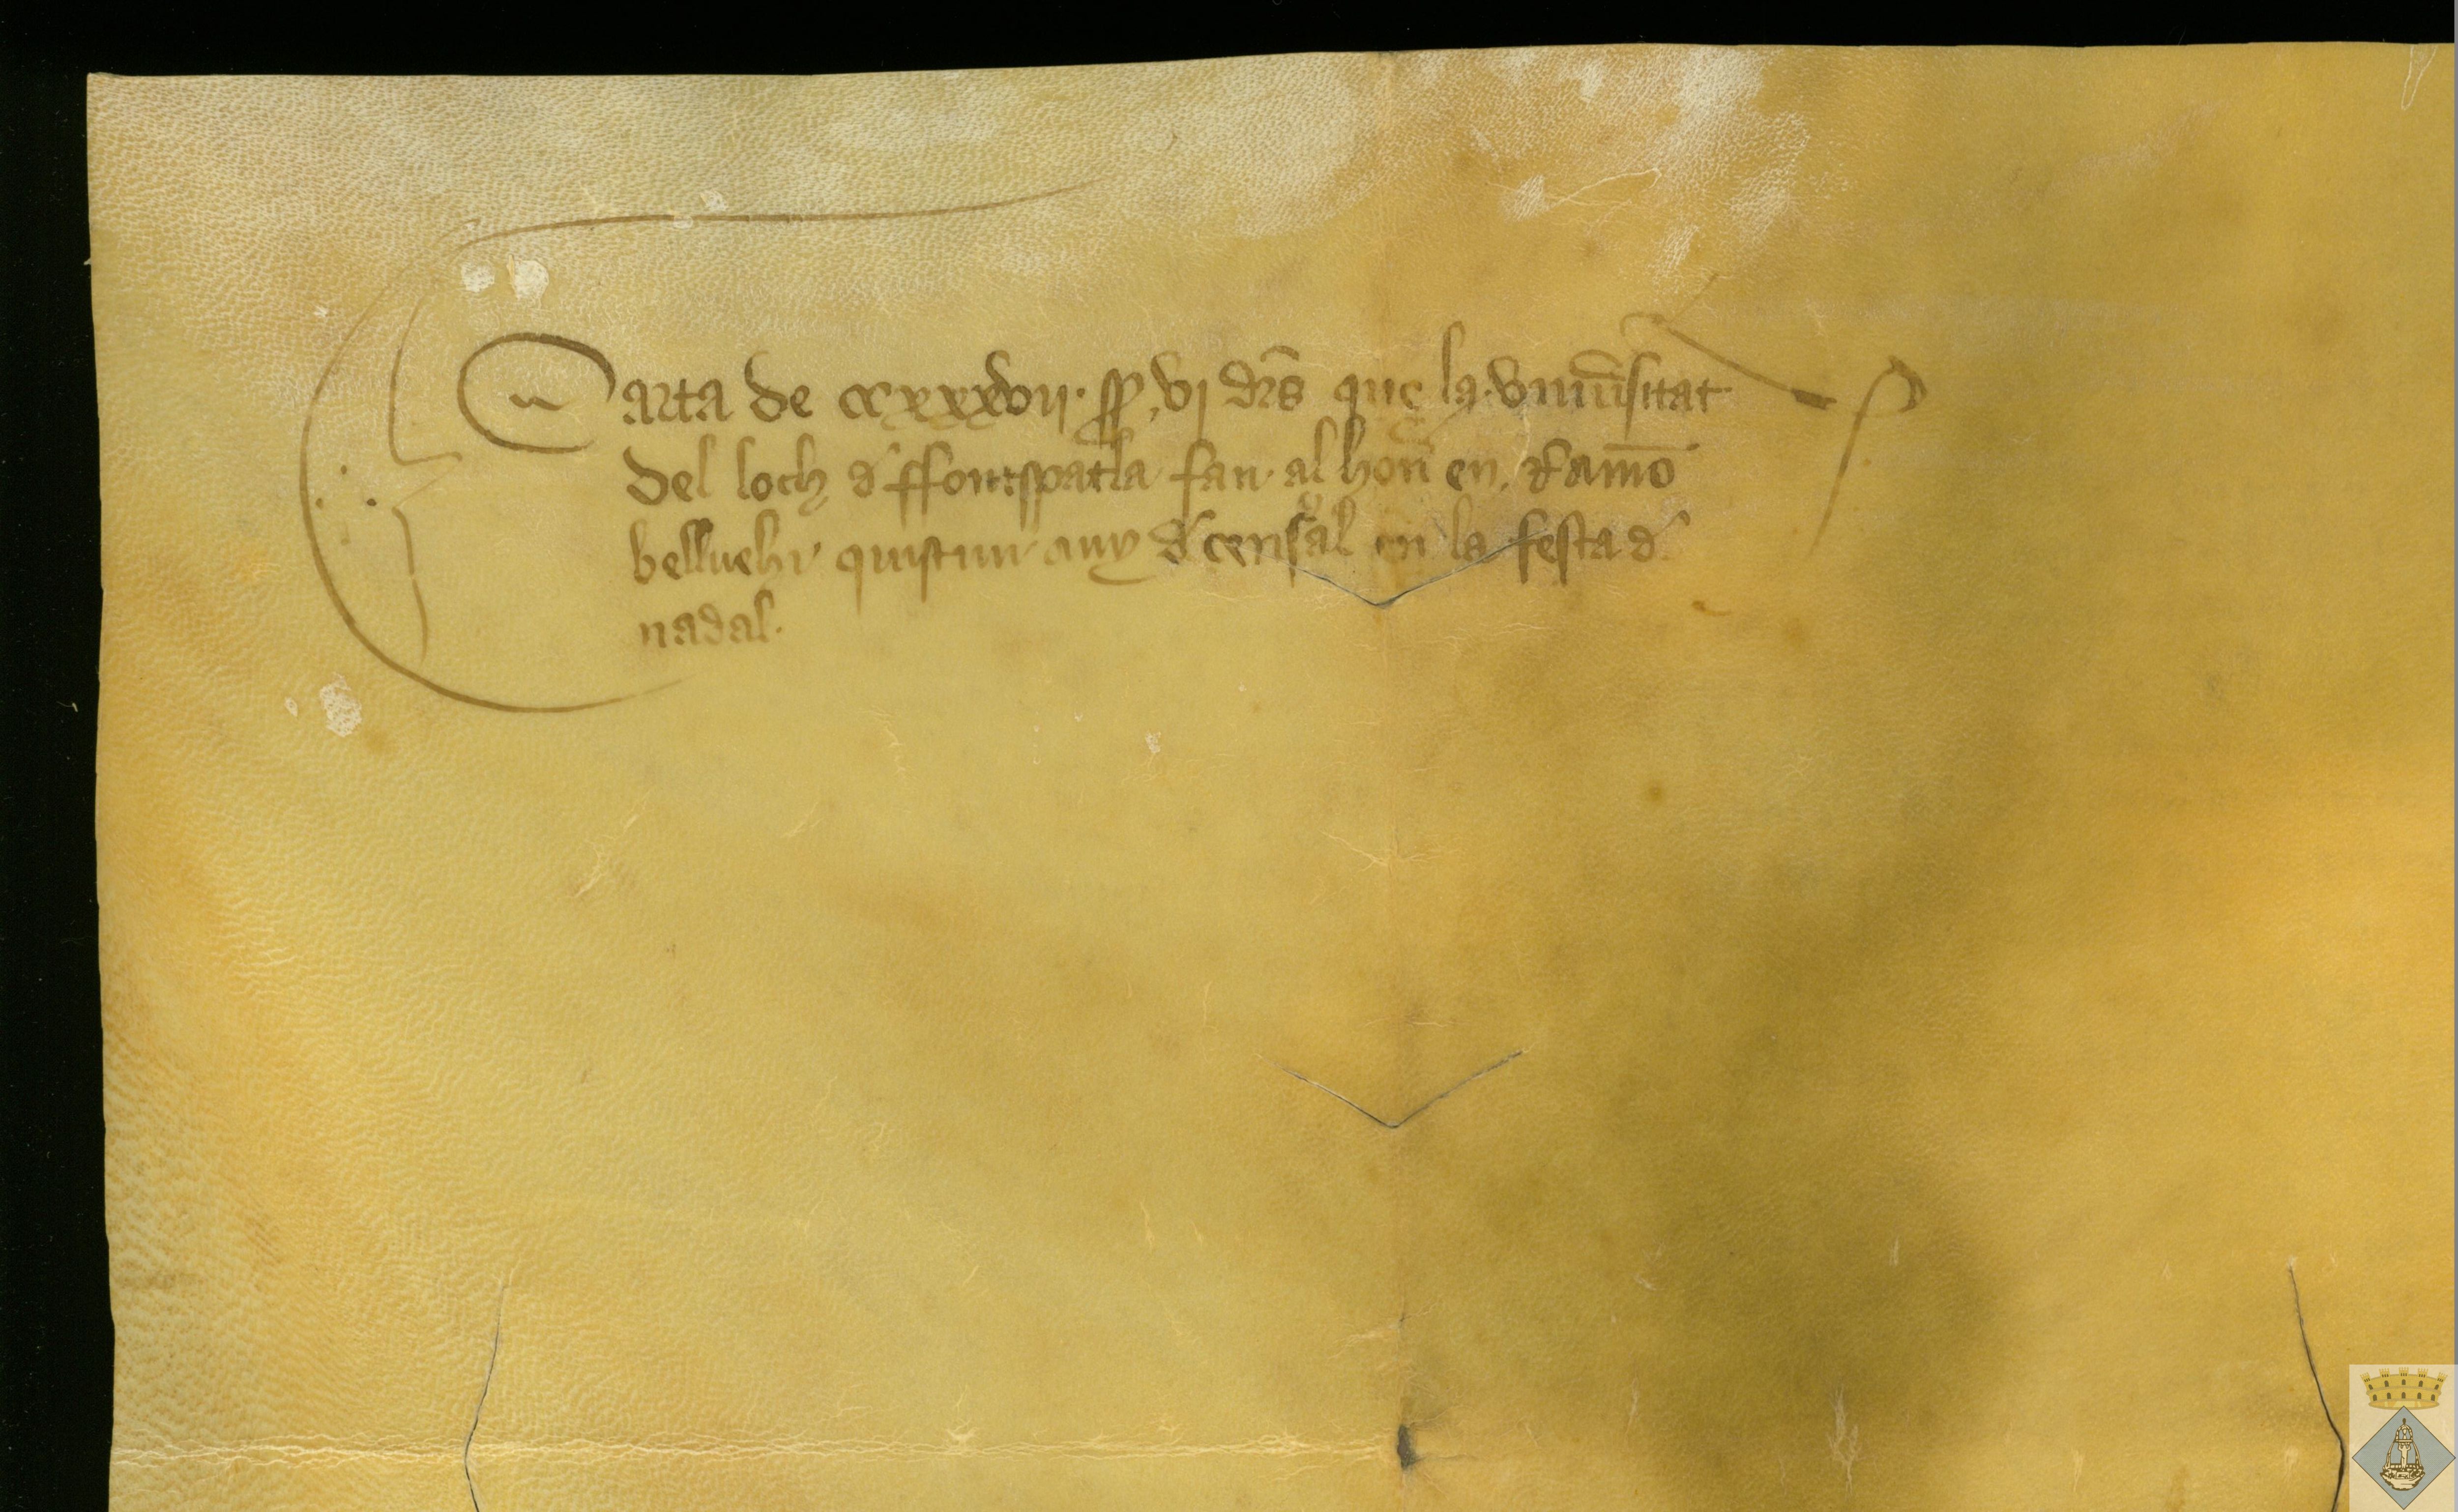 Carta de ccxxxxvii · ss̃ · vi drs̄ que la vniũsitat
del loch d' ffontspatla fan al hon̄ en Ramō
belluehi quistun any d' censal en la festa d'
nadal ·